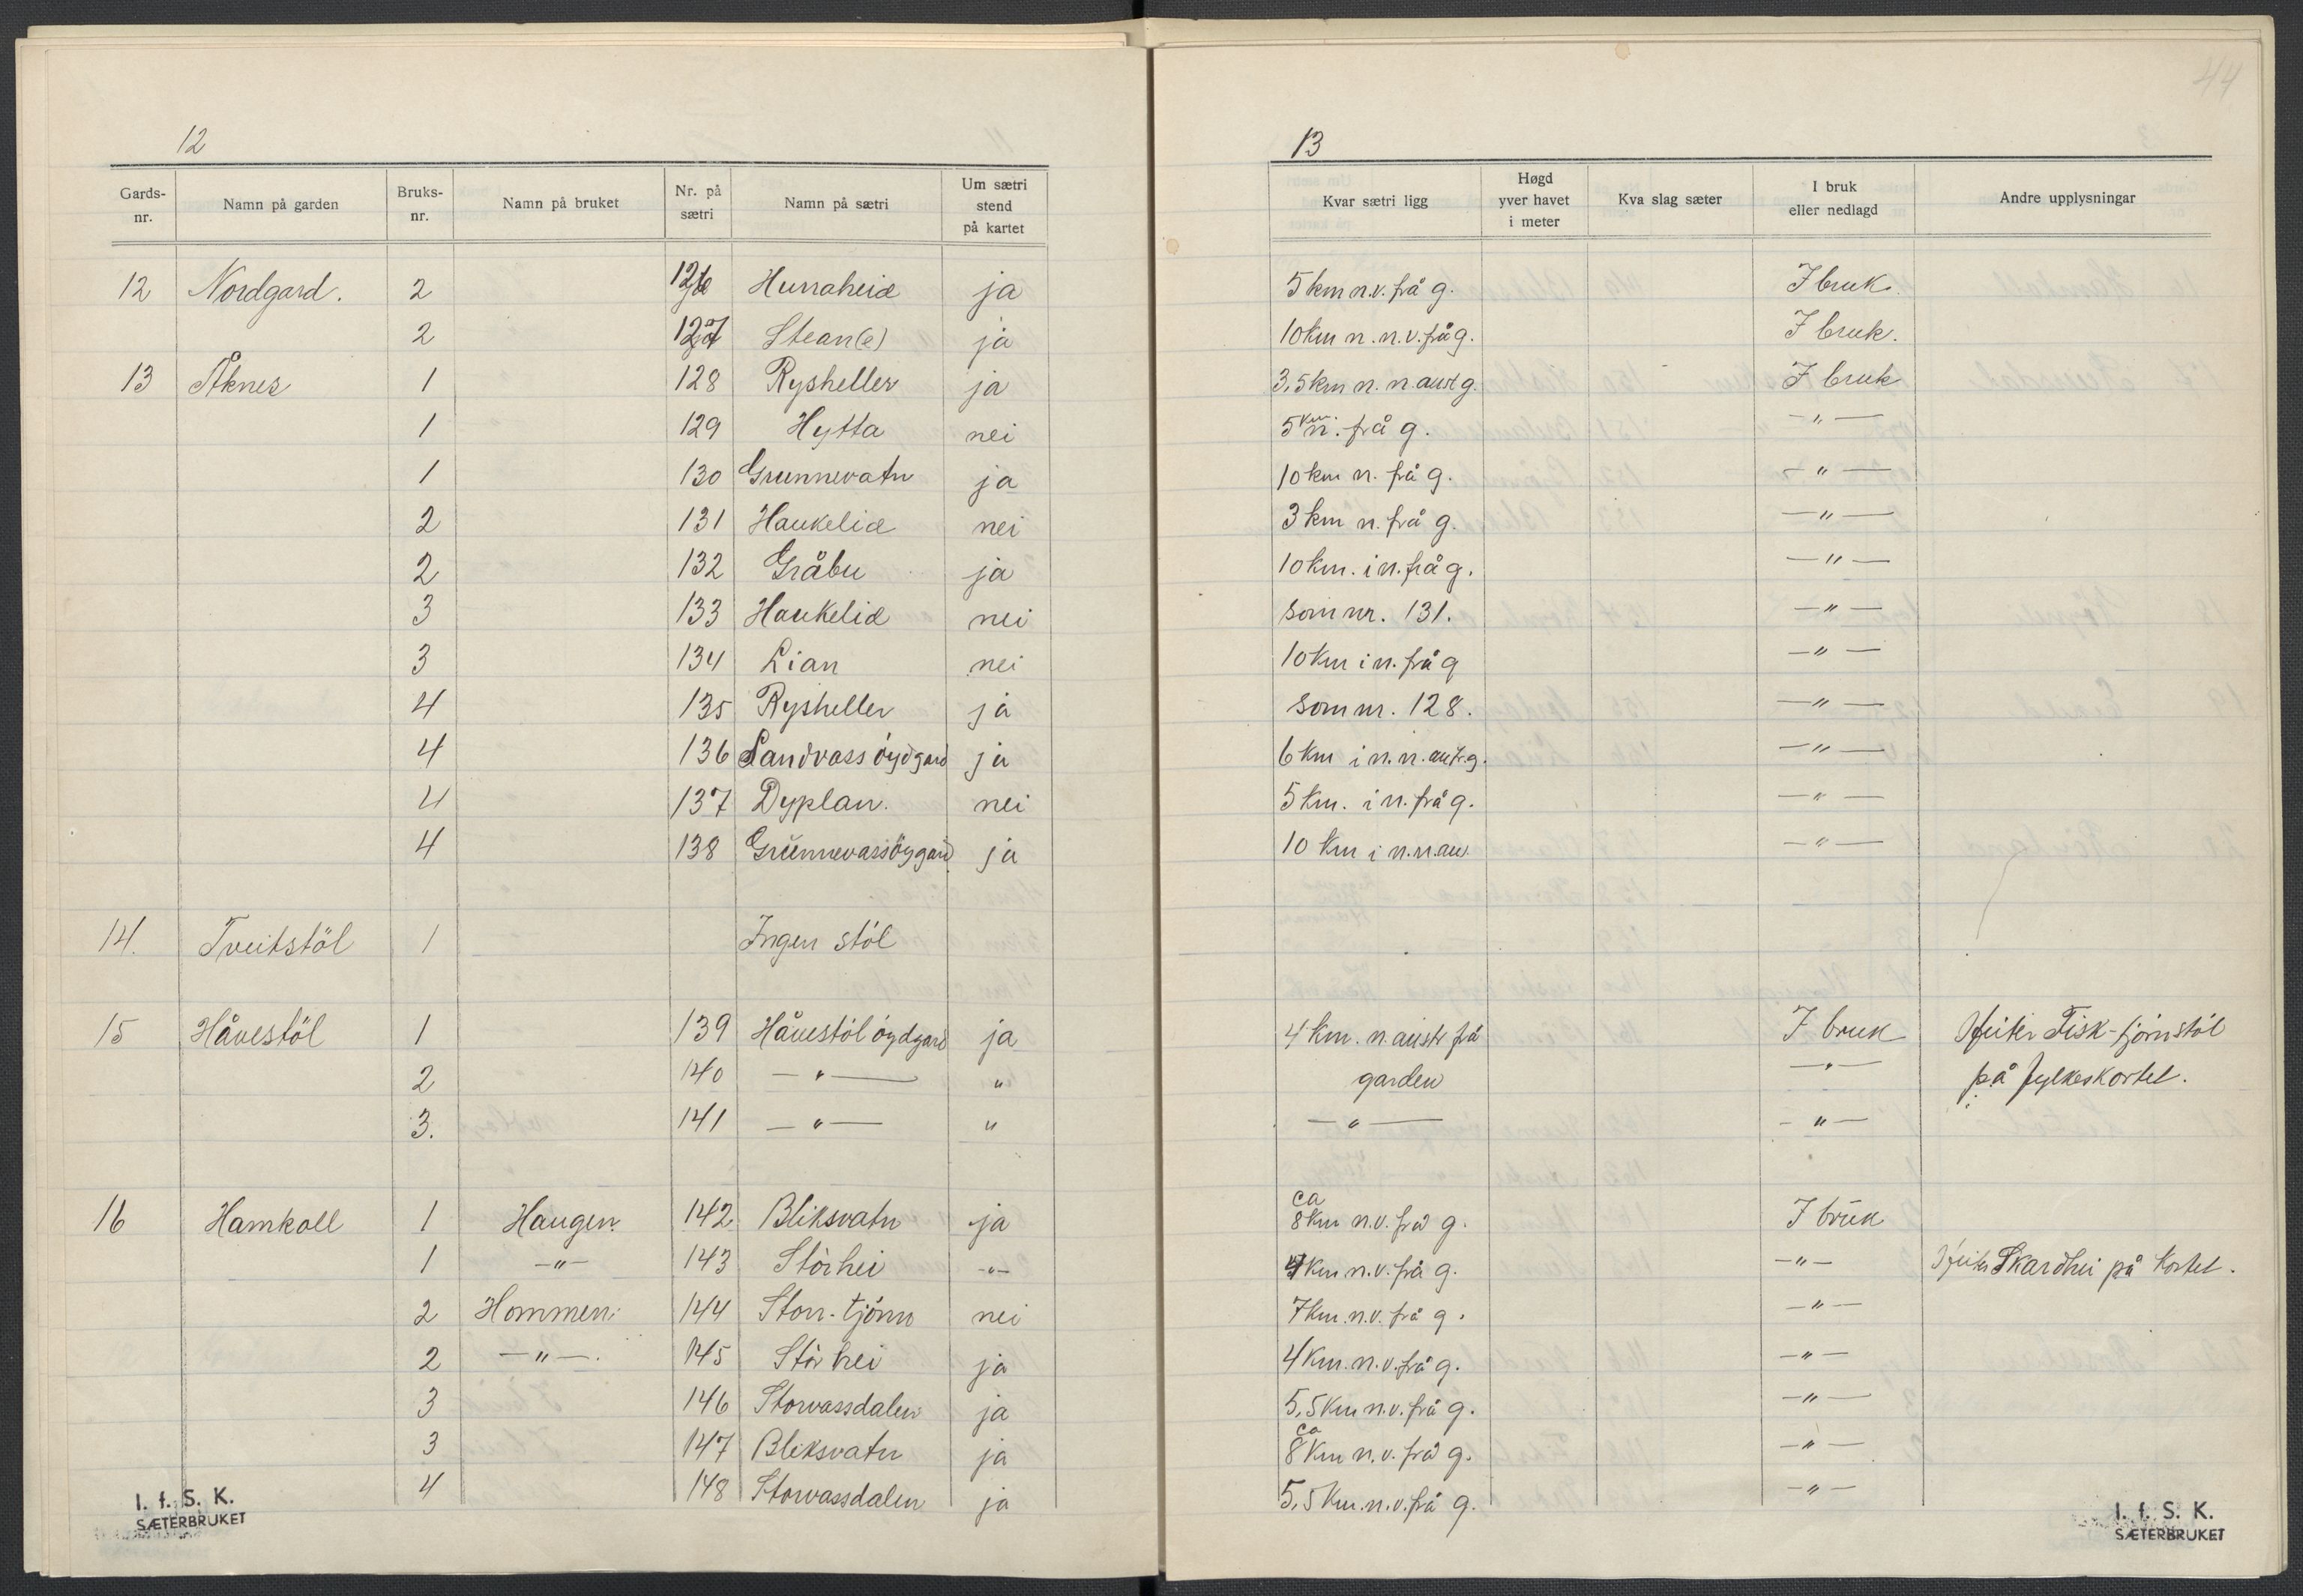 12
Gards-nr. Namn på garden Bruks-nr. Namn på bruket Nr. på sætri Namn på sætri Um sætri stend på kartet
12 Nordgard. 2 126 Hurraheid ja
2 127 Stean(e) ja
13 Åknes 1 128 Rysheller ja
1 129 Hytta nei
1 130 Grunnevatn ja
2 131 Haukelid nei
2 132 Gråbu ja
3 133 Haukelid nei
3 134 Lian nei
4 135 Rysheller ja
4 136 Sandvass øydgard ja
4 137 Dyplan. nei
4 138 Grunnevassöygard ja
14. Tveitstöl 1 Ingen stöl
15 Håvestöl 1 139 Håvestöl öydgard ja
2 140 —"— "
3. 141 —"— "
16 Hamkoll 1 Haugen 142 Bliksvatn ja
1 —"— 143 Störhei -"-
2 Hommen 144 Storr-tjönn nei
2 —"—. 145 Stör hei ja
3 146 Storvassdalen ja
3 147 Bliksvatn ja
4 148 Storvassdalen ja
I. f. S. K.
SÆTERBRUKET
44
13
Kvar sætri ligg Høgd yver havet i meter Kva slag sæter I bruk eller nedlagd Andre upplysningar
5 km n.v. frå g. I bruk.
10 km n.n.v. frå g. I bruk.
3,5 km n.n.aust g. I bruk
5 km n. frå g. —"—
10 km n. frå g. —"—
3 km n. frå g. —"—
10 km. i n. frå g. —"—
som nr. 131. —"—
10 km i n. frå g —"—
som nr. 128. —"—
6 km i n.n. g. —"—
5 km. i n. frå g. —"—
10 km i n.n.au. —"—
4 km. n.austr frå I bruk Heiter Fisk-tjörnstöl
garden —"— på fylkeskortet.
—"— -"—
ca 8 km n.v. frå g. I bruk
4 km n.v. frå g. -"- Heiter Skardhei på kortet.
7 km. n.v. frå g. —"—
4 km. n.v. frå g. —"—
5,5 km n.v. frå g. —"—
ca 8 km n.v. frå g. —"—
5,5 km. n.v. frå g. —"—
I. f. S. K.
SÆTERBRUKET